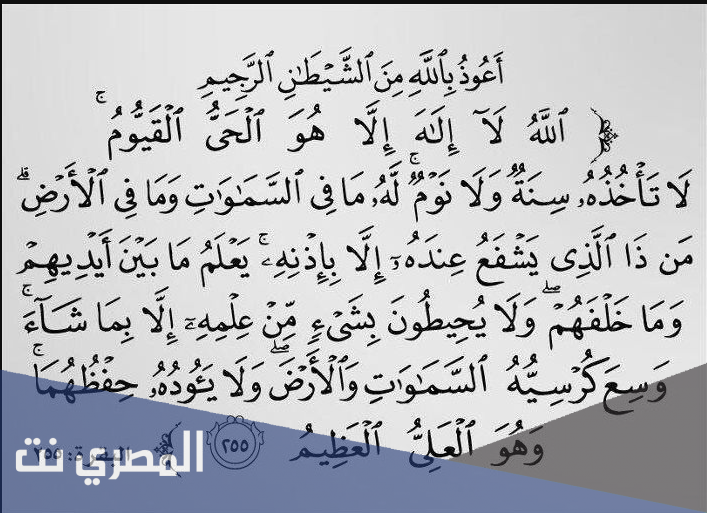 أَعُوذُ بِٱللَّهِ مِنَ ٱلشَّيْطَٰنِ ٱلرَّجِيمِ
﴿ ٱللَّهُ لَآ إِلَٰهَ إِلَّا هُوَ ٱلْحَىُّ ٱلْقَيُّومُ ۚ
لَا تَأْخُذُهُۥ سِنَةٌ وَلَا نَوْمٌ ۚ لَّهُۥ مَا فِى ٱلسَّمَٰوَٰتِ وَمَا فِى ٱلْأَرْضِ ۗ
مَن ذَا ٱلَّذِى يَشْفَعُ عِندَهُۥٓ إِلَّا بِإِذْنِهِۦ ۚ يَعْلَمُ مَا بَيْنَ أَيْدِيهِمْ
وَمَا خَلْفَهُمْ ۖ وَلَا يُحِيطُونَ بِشَىْءٍ مِّنْ عِلْمِهِۦٓ إِلَّا بِمَا شَآءَ ۚ
وَسِعَ كُرْسِيُّهُ ٱلسَّمَٰوَٰتِ وَٱلْأَرْضَ ۖ وَلَا يَـُٔودُهُۥ حِفْظُهُمَا ۚ
وَهُوَ ٱلْعَلِىُّ ٱلْعَظِيمُ ٢٥٥ ﴾ البقرة: ٢٥٥
المصري نت